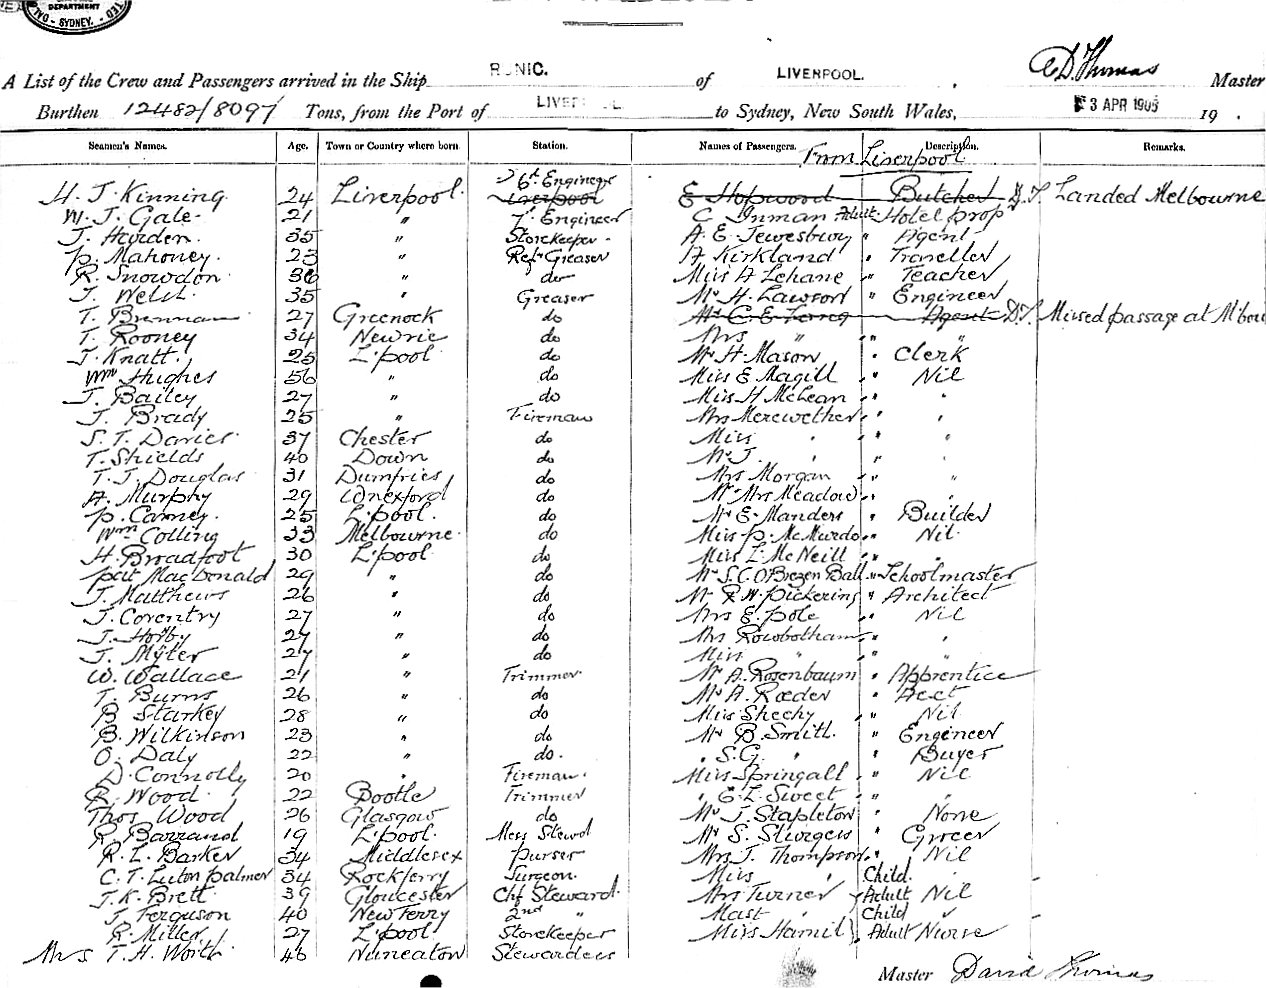 DEPARTMENT
SYDNEY.
A List of the Crew and Passengers arrived in the Ship RUNIC. of LIVERPOOL. D. Thomas Master
Burthen 12482/8097 Tons, from the Port of LIVERPOOL to Sydney, New South Wales, 3 APR 190 19 .
Seamen's Names. Age. Town or Country where born. Station. Names of Passengers. Description. Remarks.
From Liverpool
H. J. Kinning 24 Liverpool 6th Engineer E Hopwood Butcher D.T. Landed Melbourne
W. J. Gale 21 " 7th Engineer C Inman Adult Hotel prop
J. Harden 35 " Storekeeper A. E. Tewesbury " Agent
P. Mahoney 23 " Refr Greaser A Kirkland " Traveller
R. Snowdon " do Miss A Lehane " Teacher
J. Welsh 35 " Greaser Mr H. Lawson " Engineer
T. Brennan 27 Greenock do Mr C. E. Agent D.T. Missed passage at M'bou
T. Rooney 34 Newrie do Mrs " " "
J. Knatt. 25 L'pool do Mr H. Mason " Clerk
Wm Hughes 56 " do Miss E Magill " Nil
J. Bailey 27 " do Miss H McLean " "
J. Brady 25 " Fireman Mrs Merewether " "
S. T. Davies 37 Chester do Miss " " "
T. Shields 40 Down do Mr J. " " "
T. J. Douglas 31 Dumfries do Mrs Morgan " "
A. Murphy 29 Wexford do Mr Mrs Meadow " "
P. Carney 25 L'pool. do Mr E. Manders " Builder
Wm Colling 33 Melbourne do Miss P. McMurdo " Nil
H. Broadfoot 30 L'pool do Miss L. McNeill " "
Pat MacDonald 29 " do Mr S. C. O'Brazen Ball " Schoolmaster
J. Matthews 26 " do Mr R. W. Pickering " Architect
J. Coventry 27 " do Mrs E. Pole " Nil
J. Horby 27 " do Mrs Rowbotham " "
J. Myler 27 " do Miss " " "
W. Wallace 21 " Trimmer Mr A. Rosenbaum " Apprentice
T. Burns 26 " do Mr A. Roeder "
B Starkey 28 " do Miss Sheehy " Nil
B. Wilkinson 23 " do Mr B. Smith. " Engineer
O. Daly 22 " do. " S. G. " " Buyer
D. Connolly 20 " Fireman. Miss Springall " Nil
R. Wood 22 Bootle Trimmer " E. L. Sweet " "
Thos Wood 26 Glasgow do Mr J. Stapleton " None
R Barrand 19 L'pool. Mess Stewd Mr S. Sturgess " Grocer
R. L. Barker 34 Middlesex Purser Mrs J. Thompson " Nil
C. T. Luton Palmer 34 Rockferry Surgeon. Miss " Child. "
J. K. Brett 39 Gloucester Chf Steward Mrs Turner Adult Nil
J. Ferguson 40 New Ferry 2nd " Mast " Child "
R. Miller 27 L'pool Storekeeper Miss Hamil Adult Nurse
Mrs T. H. Worth 46 Nuneaton Stewardess
Master David Thomas